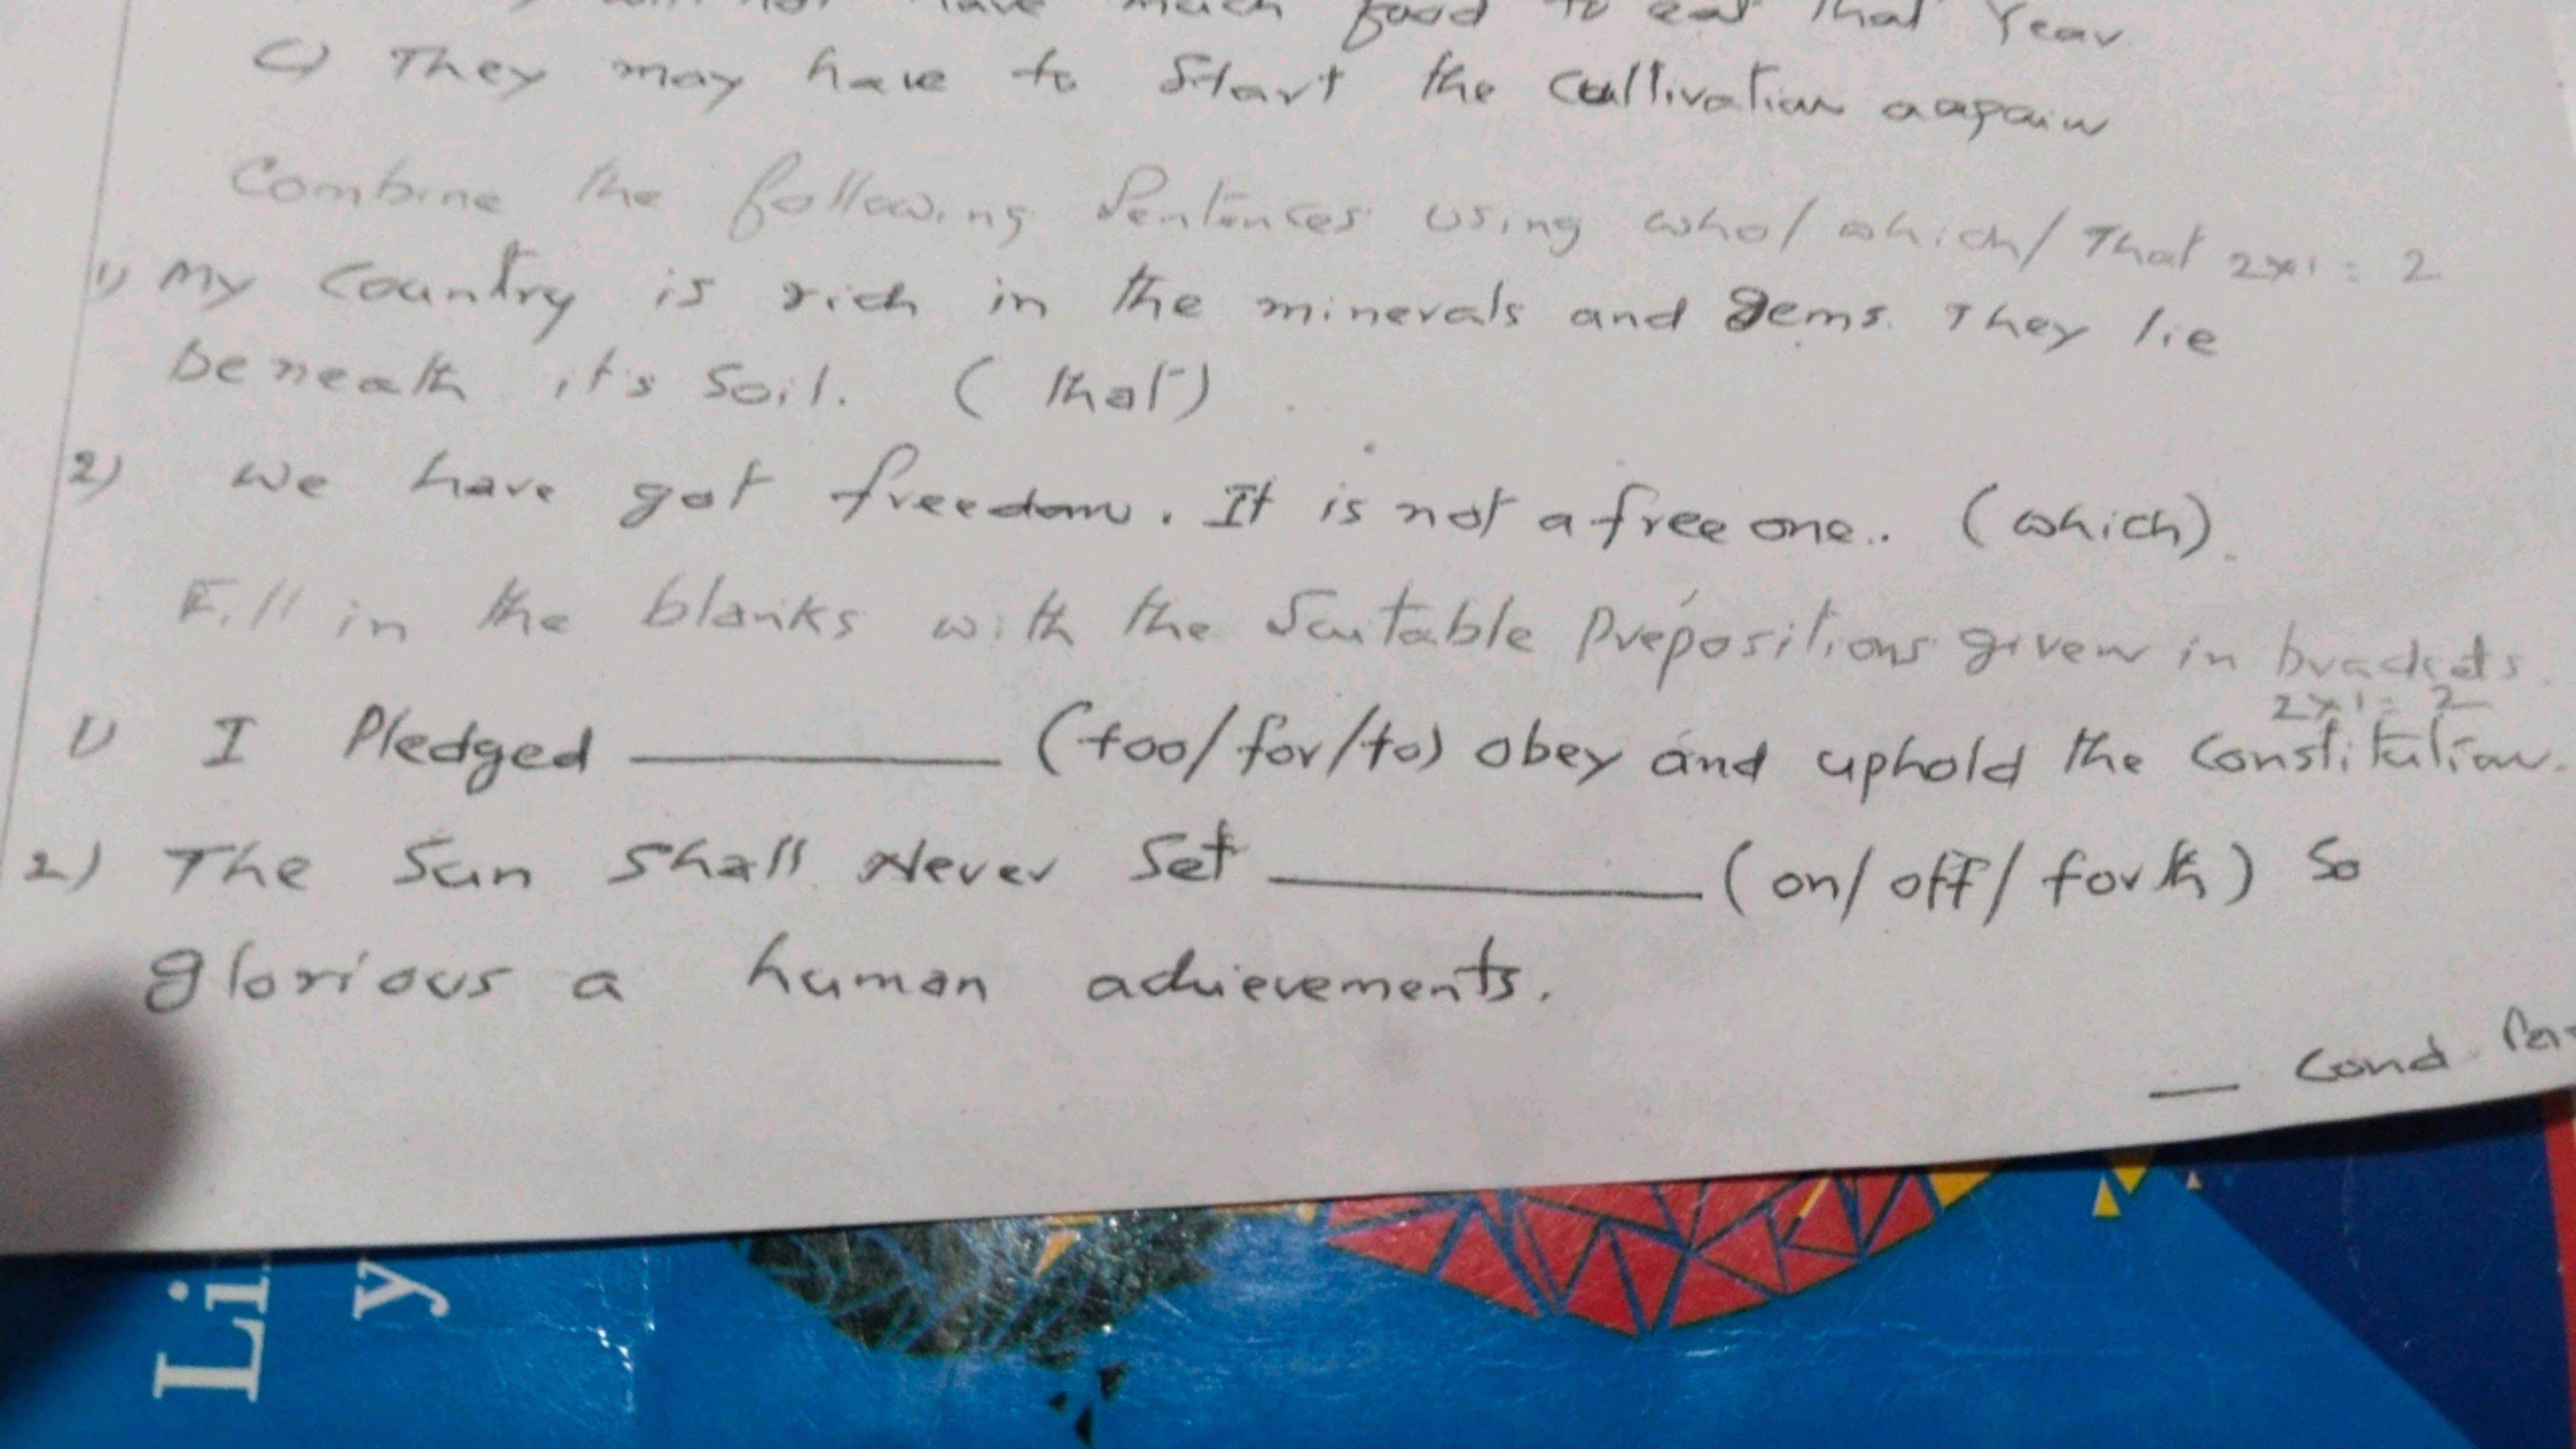 have much food to eat that Year
c) They may have to Start the Cultivation aagain
Combine the following Sentences using who/which/That 2x1=2
1) My Country is rich in the minerals and gems. They lie
beneath it's Soil. (that)
2) we have got freedom. It is not a free one.. (which).
Fill in the blanks with the Suitable Prepositions given in brackets.
2x1=2
1) I Pledged ________ (too/for/to) obey and uphold the Constitution.
2) The Sun Shall Never Set ________ (on/off/forth) So
glorious a human achievements.
— Cond
Li
y